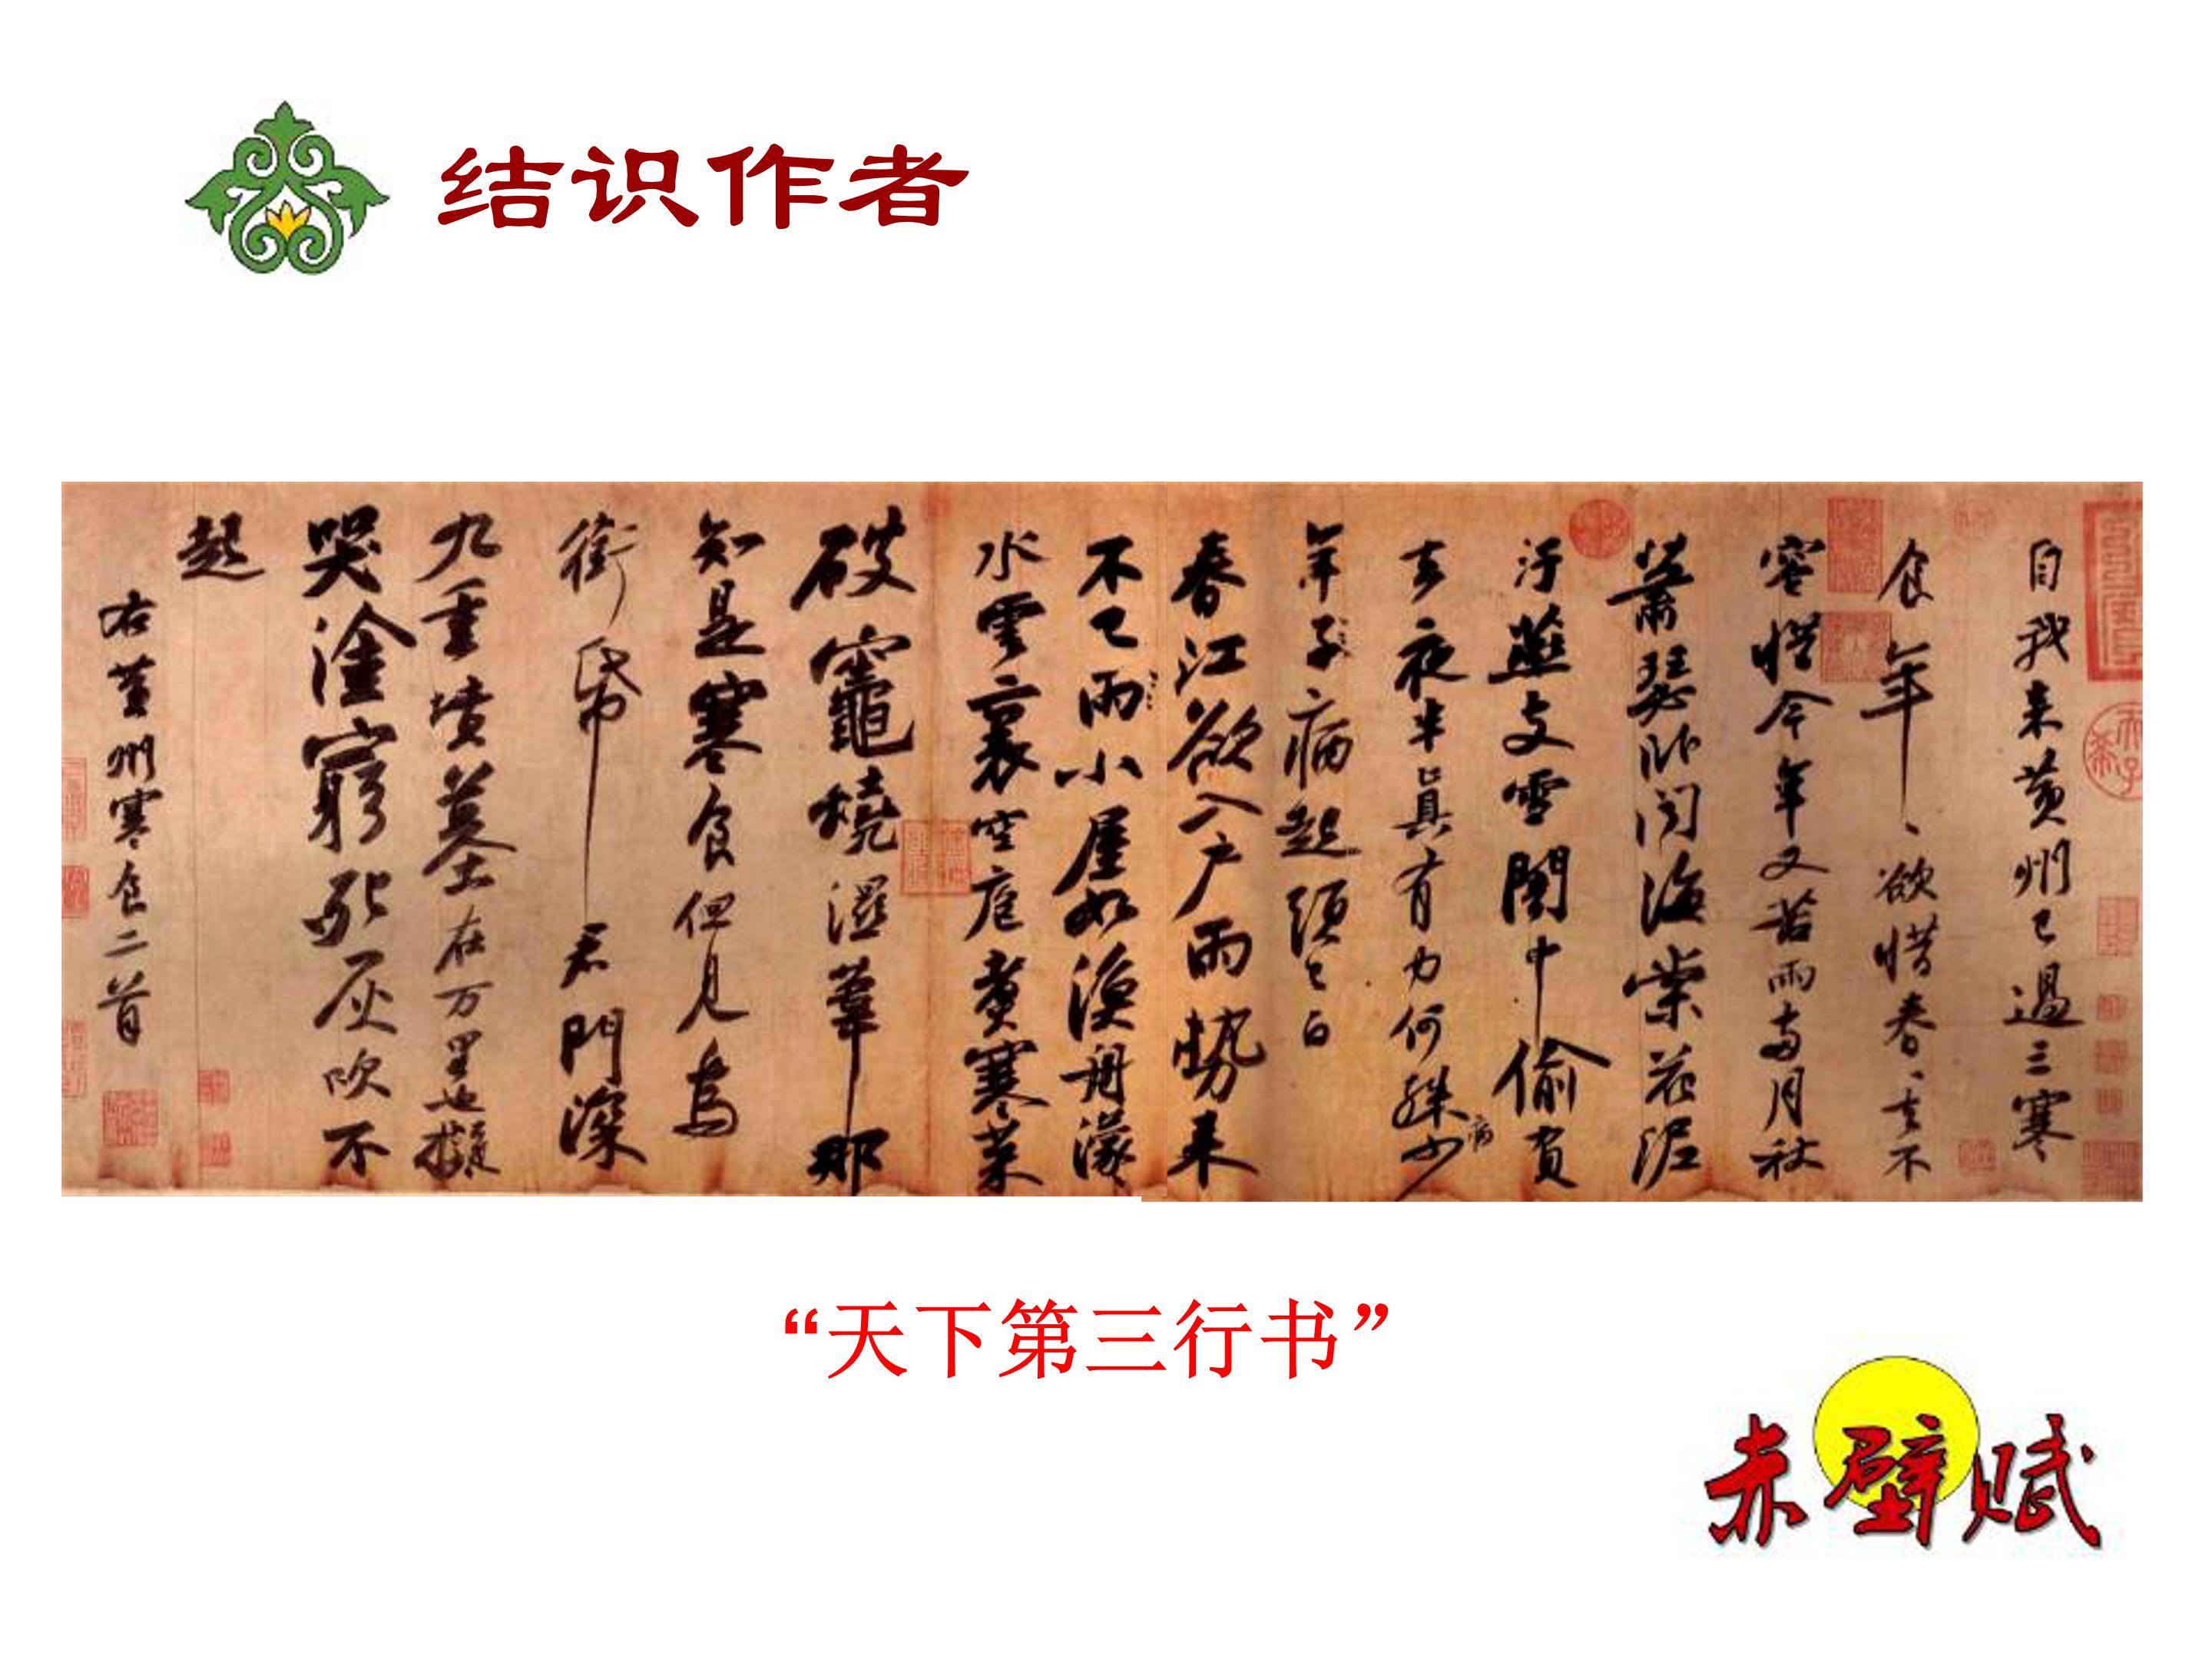 结识作者
自我来黄州已过三寒
食年〻欲惜春〻去不
容惜今年又苦雨两月秋
萧瑟卧闻海棠花泥
污燕支雪闇中偷负
去夜半真有力何殊少
年子病起须已白
病
春江欲入户雨势来
不已雨小屋如渔舟濛
水云里空庖煮寒菜
破灶烧湿苇那
知是寒食但见乌
衔帋君门深
九重坟墓在万里也拟
哭涂穷死灰吹不
起
右黄州寒食二首
“天下第三行书”
赤壁赋